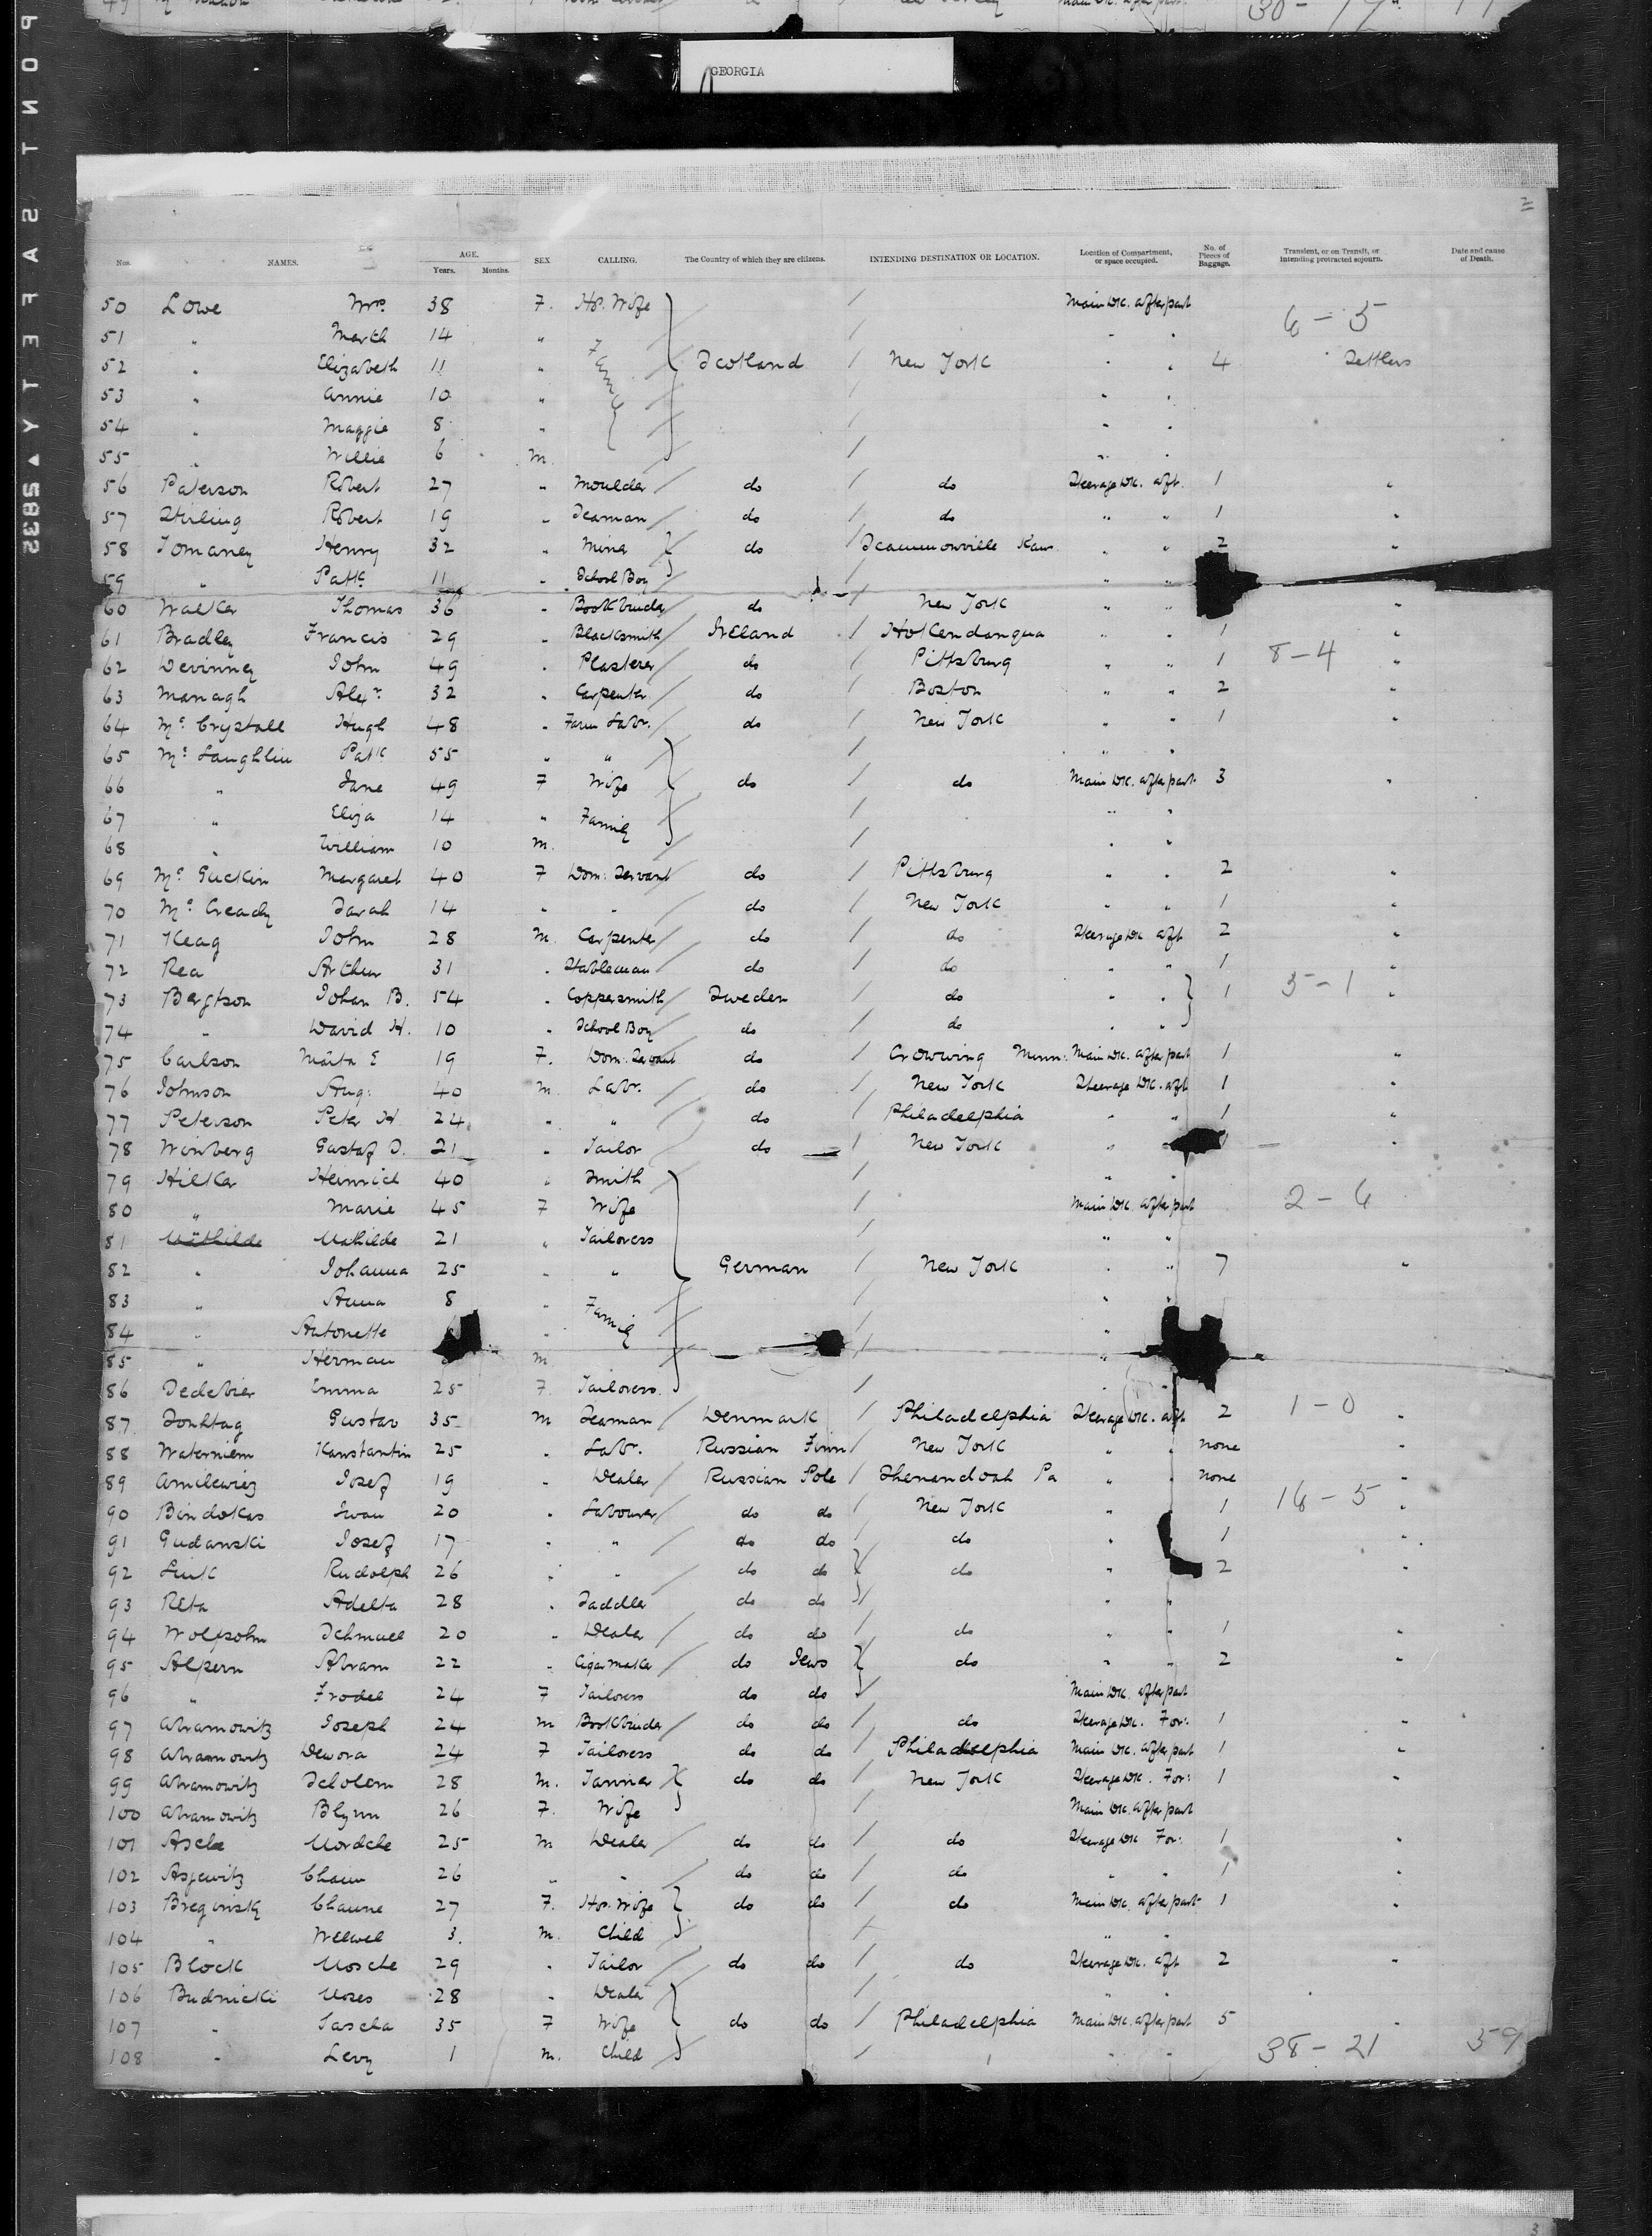 GEORGIA
Nos. NAMES. AGE. Years. Months. SEX CALLING. The Country of which they are citizens. INTENDING DESTINATION OR LOCATION. Location of Compartment, or space occupied. No. of Pieces of Baggage. Transient, or on Transit, or intending protracted sojourn. Date and cause of Death.
50 Lowe Mrs. 38 F. Hs. Wife Main Dk. after part
6-5
51 " Marth 14 "
52 " Elizabeth 11 " Family Scotland New York 4 Settlers
53 " Annie 10 "
54 " Maggie 8 "
55 " Willie 6 M.
56 Paterson Robert 27 " Moulder do do Steerage Dk. aft. 1 "
57 Stirling Robert 19 " Seaman do do " " 1 "
58 Tomaney Henry 32 " Miner do Scammonville Kan. " " 2 "
59 " Patk. 11 " School Boy " "
60 Walker Thomas 36 " Bookbinder do New York " " "
61 Bradley Francis 29 " Blacksmith Ireland Hokendauqua " " 1 "
62 Devinney John 49 " Plasterer do Pittsburg " " 1 8-4 "
63 Managh Alexr. 32 " Carpenter do Boston " " 2 "
64 Mc. Crystall Hugh 48 " Farm Labr. do New York " " 1 "
65 Mc. Laughlin Patk 55 " " " "
66 " Jane 49 F Wife do do Main Dk. after part 3 "
67 " Eliza 14 " Family " "
68 " William 10 M. " "
69 Mc. Guckin Margaret 40 F Dom: Servant do Pittsburg " " 2 "
70 Mc. Cready Sarah 14 " " do New York " " 1 "
71 Keag John 28 M. Carpenter do do Steerage Dk aft 2 "
72 Rea Arthur 31 " Stableman do do " " 1 "
73 Bergtson Johan B. 54 " Coppersmith Sweden do " " 1 5-1 "
74 " David H. 10 " School Boy do do " "
75 Carlson Maita E 19 F. Dom: Servant do Crowwing Minn: Main Dk. after part 1 "
76 Johnson Aug: 40 M. Labr. do New York Steerage Dk. aft 1 "
77 Peterson Peter H 24 " " do Philadelphia " " 1 "
78 Winberg Gustaf D. 21 " Tailor do New York " " 1 "
79 Hilker Heinrich 40 " Smith " "
80 " Marie 45 F Wife Main Dk. after part 2-6
81 Mathilde Mathilde 21 " Tailoress " "
82 " Johanna 25 " " German New York " " 7 "
83 " Anna 8 " Family " "
84 " Antonette " "
85 " Herman M "
86 Emma 25 F. Tailoress "
87 Sonhtag Gustav 35 M Seaman Denmark Philadelphia Steerage Dk. aft 2 1-0 "
88 Konstantin 25 " Labr. Russian Finn New York " " none "
89 Josef 19 " Dealer Russian Pole Shenandoah Pa " " none "
90 Bindokas Iwan 20 " Labourer do do New York " 1 16-5 "
91 Gudanski Josef 17 " " do do do " 1 "
92 Link Rudolph 26 " " do do do " 2 "
93 Reta Adelta 28 " Saddler do do " "
94 Wolfsohn Schmuel 20 " Dealer do do do " " 1 "
95 Alpern Abram 22 " Cigar Maker do Jews do " " 2 "
96 " Frodel 24 F Tailoress do do Main Dk. after part
97 Abramowitz Joseph 24 M Bookbinder do do do Steerage Dk. For: 1 "
98 Abramowitz Dewora 24 F Tailoress do do Philadelphia Main Dk. after part 1 "
99 Abramowitz Scholem 28 M. Tanner do do New York Steerage Dk. For: 1 "
100 Abramowitz Blynn 26 F. Wife Main Dk. after part
101 Mordche 25 M Dealer do do do Steerage Dk For: 1 "
102 Chaim 26 " " do do do " " 1 "
103 Breginsky Chaune 27 F. Hs. Wife do do do Main Dk. after part 1 "
104 " Welwel 3. M. Child " "
105 Block Mosche 29 " Tailor do do do Steerage Dk. aft 2 "
106 Budnicki Moses 28 " Dealer " "
107 " 35 F Wife do do Philadelphia Main Dk. after part 5 "
108 " Levy 1 M. Child " " 38-21 59